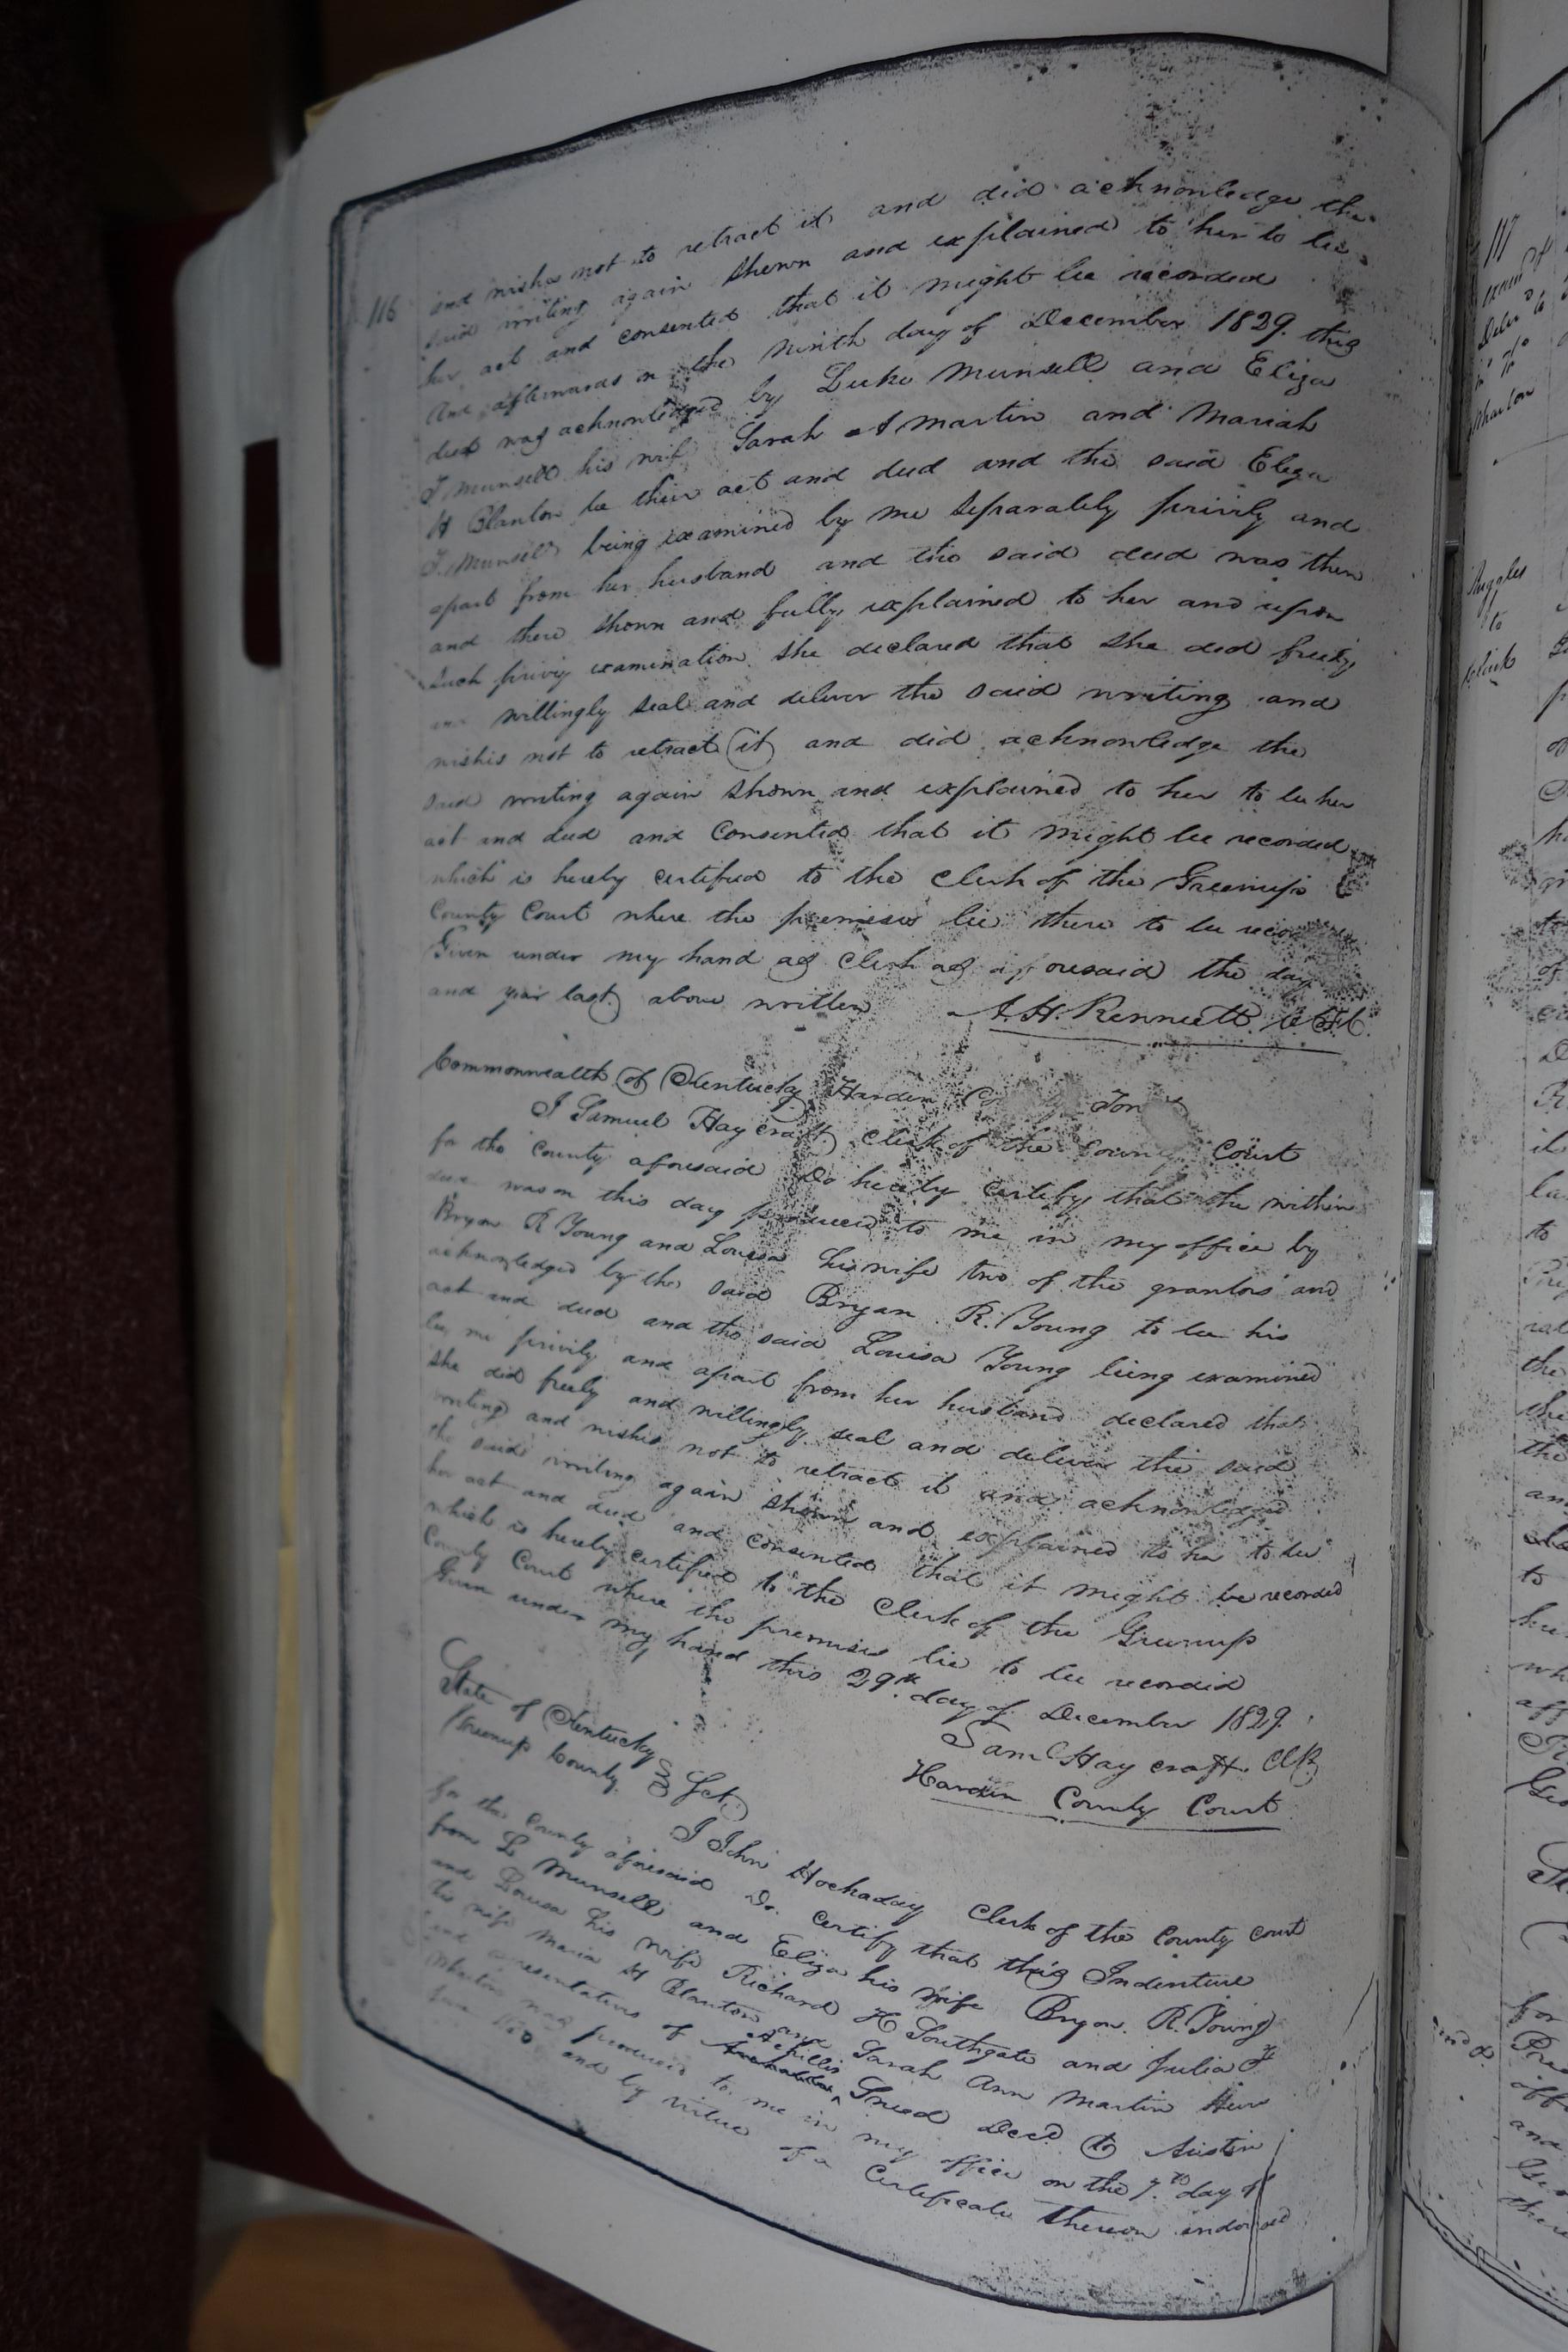 116
and wishes not to retract it and did acknowledge the
said writing again shewn and explained to her to be
her act and consented that it might be recorded
And afterwards on the ninth day of December 1829. this
deed was acknowledged by Luke Munsell and Eliza
T. Munsell his wife Sarah A Martin and Mariah
H Blanton be their act and deed and the said Eliza
T. Munsell being examined by me separately privily and
apart from her husband and the said deed was then
and there shown and fully explained to her and upon
such privy examination she declared that she did freely
and willingly seal and deliver the said writing and
wishes not to retract it and did acknowledge the
said writing again shown and explained to her to be her
act and deed and consented that it might be recorded
which is hereby certified to the clerk of the Greenup
County Court where the premises lie there to be recorded
Given under my hand as clerk as aforesaid the day
and year last above written A. H. Rennick
Commonwealth of Kentucky Hardin County
I Samuel Haycraft clerk of the County Court
for the County aforesaid Do hereby certify that the within
deed was on this day produced to me in my office by
Bryan R Young and Louisa his wife two of the grantors and
acknowledged by the said Bryan R. Young to be his
act and deed and the said Louisa Young being examined
by me privily and apart from her husband declared that
she did freely and willingly seal and deliver the said
writing and wishes not to retract it and acknowledged
the said writing again shown and explained to her to be
her act and deed and consented that it might be recorded
which is hereby certified to the Clerk of the Greenup
County Court where the premises lie to be recorded
Given under my hand this 29th day of December 1829.
Saml Haycraft. Clk
Hardin County Court
State of Kentucky
Greenup County. Sct.
I John Hockaday Clerk of the County court
for the County aforesaid Do certify that this Indenture
from L Munsell and Eliza his wife Bryan. R. Young
and Louisa his wife Richard H Southgate and Julia F
his wife Maria H Blanton and Sarah Ann Martin Heirs
and representatives of Achilles Sneed Decd to Austin
Wharton was produced to me in my office on the 7th day of
and by virtue of a Certificate thereon endorsed
117
to
Wharton
Ruggles
to